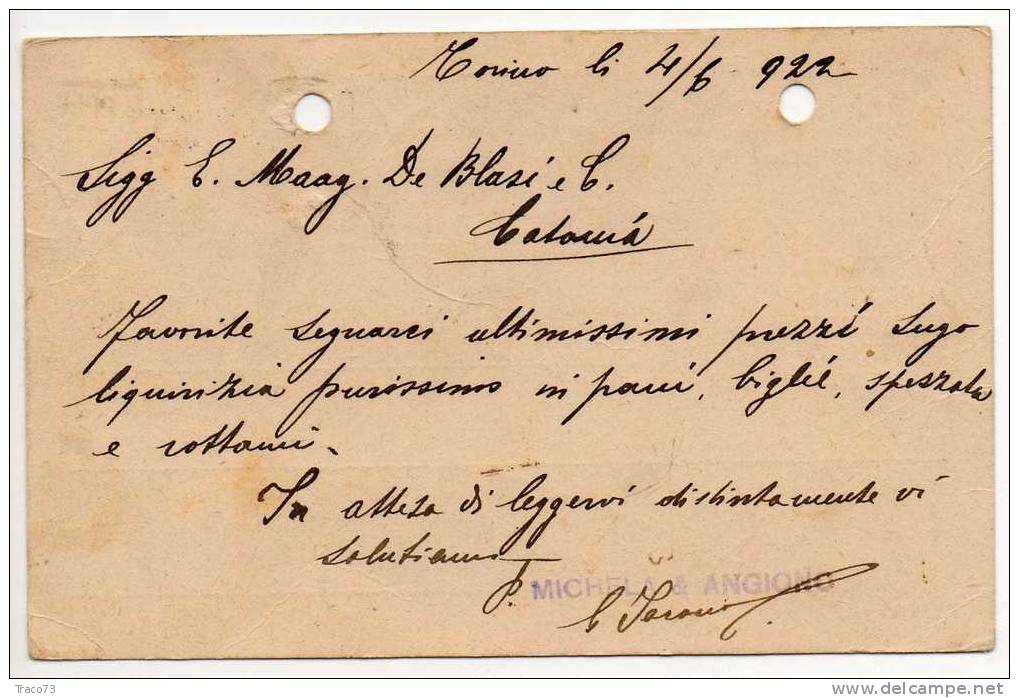 Torino li 4/6 922
Sigg E. Maag. De Blasi e C.
Catania
Favorite segnarci ultimissimi prezzi sugo
liquirizia purissimo in pani, biglie, spezzata
e rottami.
In attesa di leggervi distintamente vi
salutiamo
P. MICHELA & ANGIONO
Traco73
delcampe.net